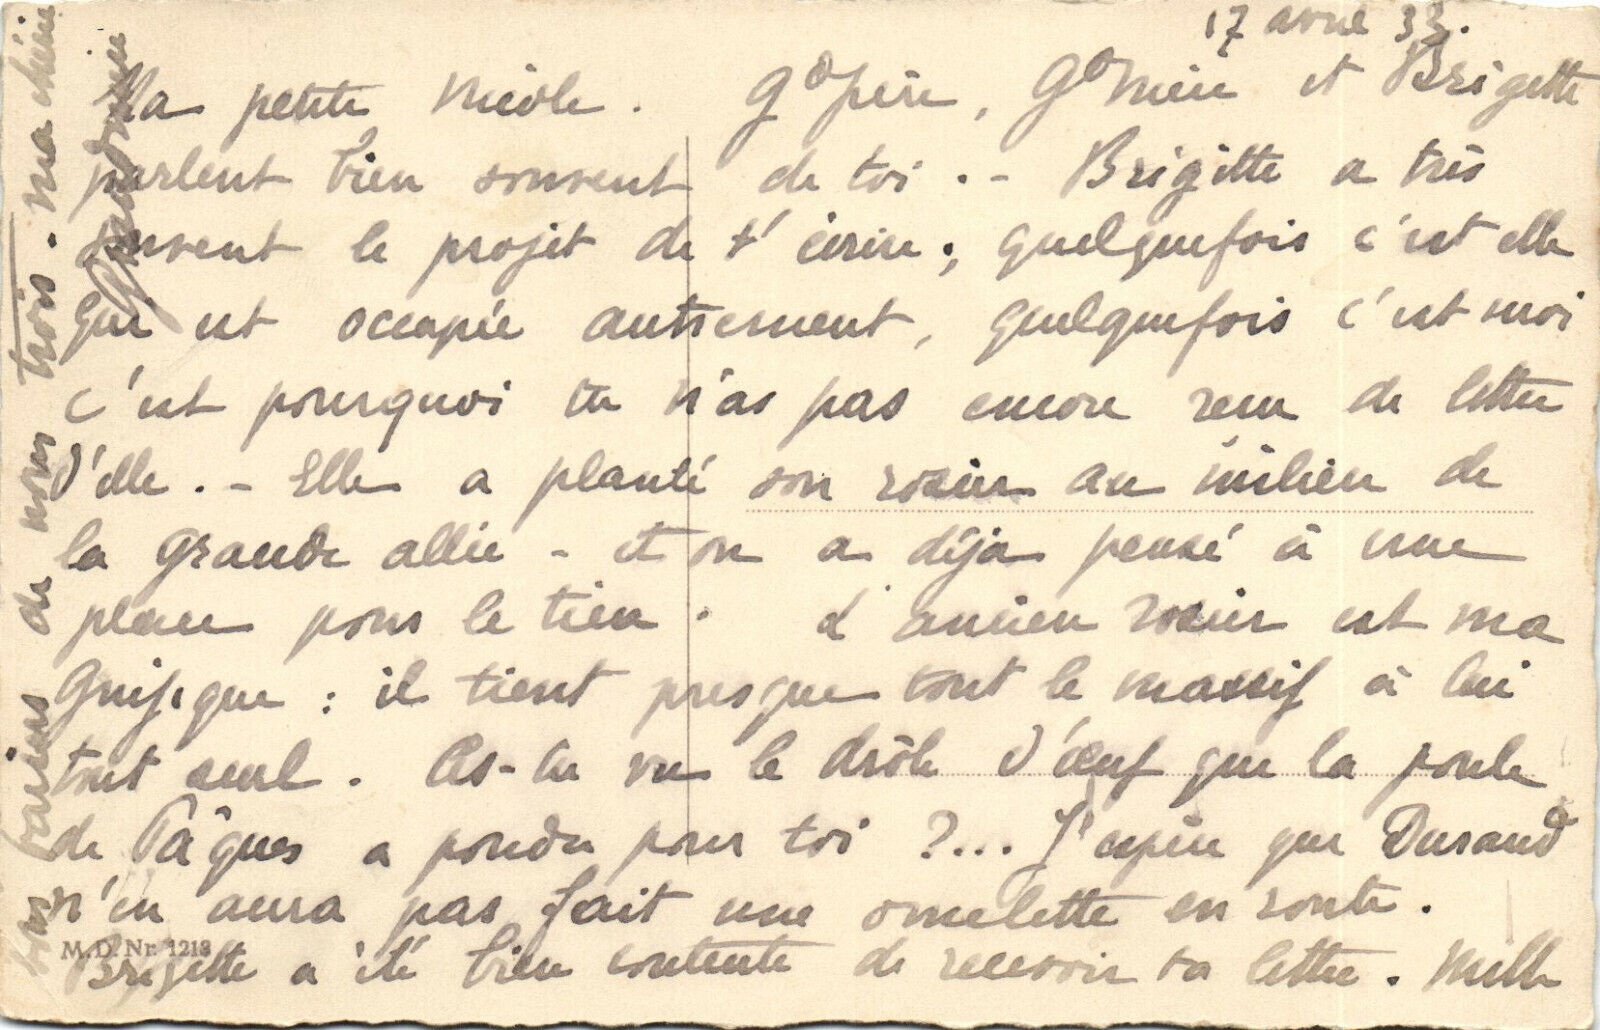 17 avril 33.
Ma petite Nicole. Gd père, Gd Mère et Brigitte
parlent bien souvent de toi. - Brigitte a très
souvent le projet de t'écrire ; quelquefois c'est elle
qui est occupée autrement, quelquefois c'est moi
c'est pourquoi tu n'as pas encore reçu de lettre
d'elle. - Elle a planté son rosier au milieu de
la grande allée - et on a déja pensé à une
place pour le tien. L'ancien rosier est ma
gnifique : il tient presque tout le massif à lui
tout seul. As-tu vu le drôle d'œuf que la poule
de Pâques a pondu pour toi ?... J'espère que Durand
n'en aura pas fait une omelette en route.
Brigitte a été bien contente de recevoir ta lettre. Mille
bons baisers de nous trois. ma chérie
M.D. Nr. 1218